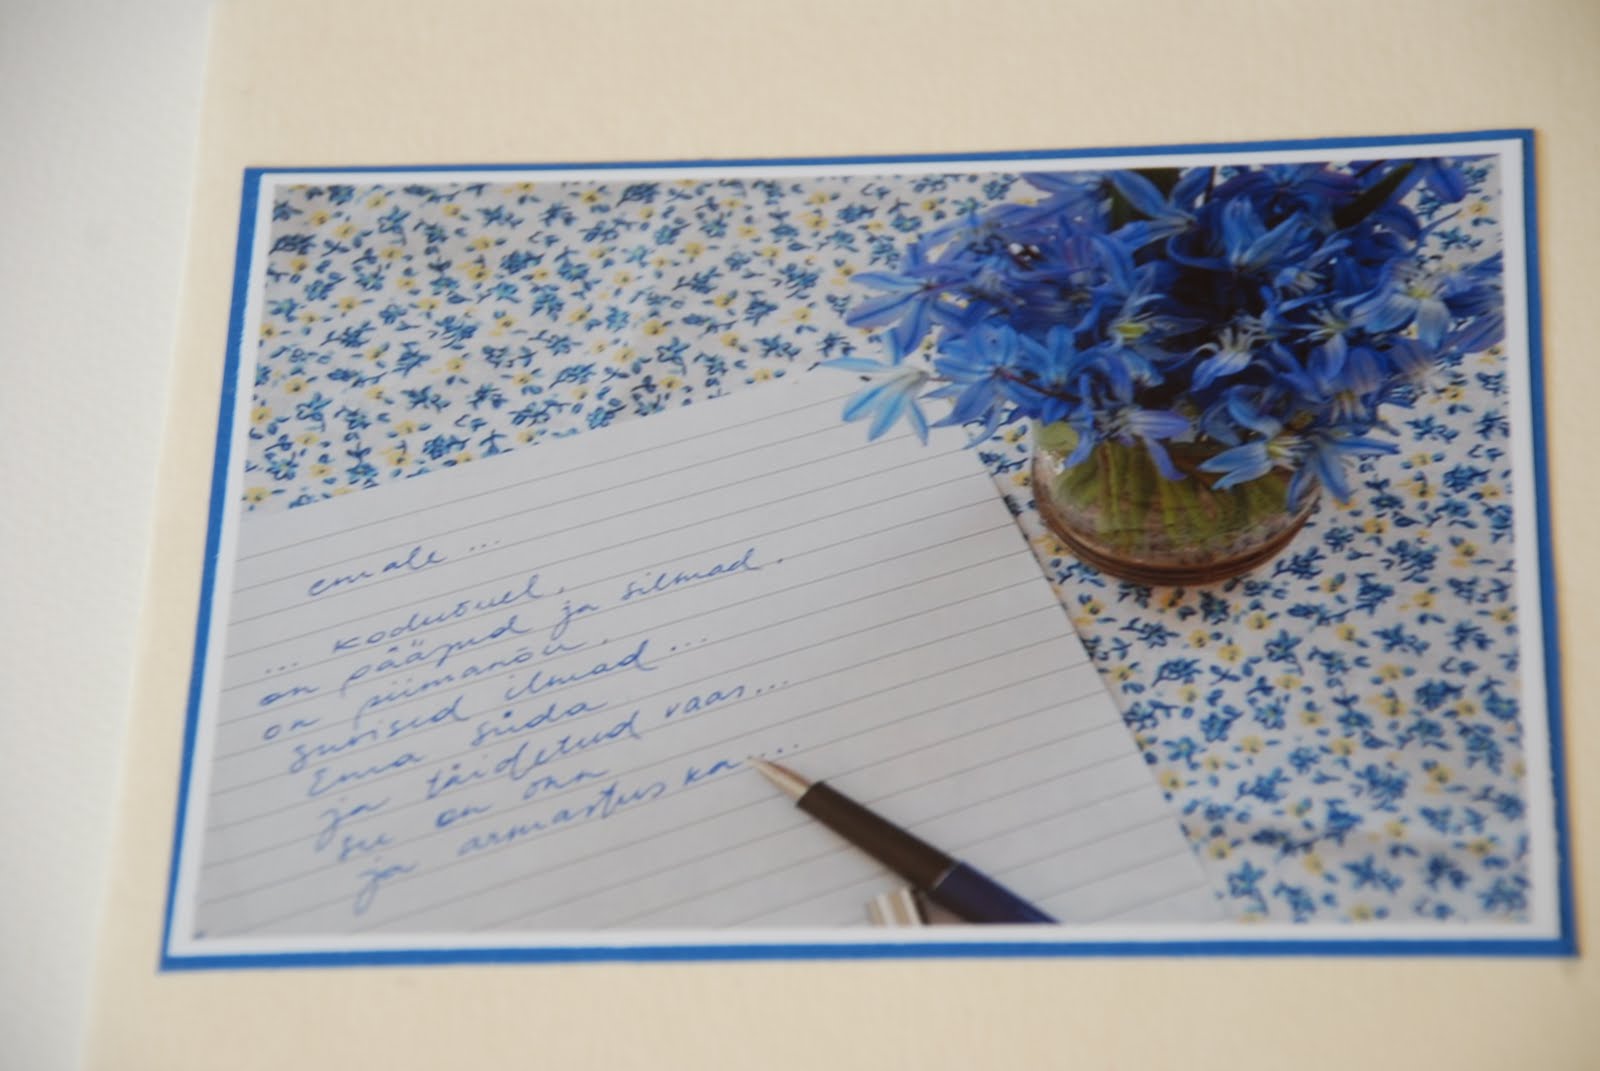 emale ...
... koduõuel,
on pääsud ja silmad.
on piimanõu.
surised ilmad ...
Ema süda
ja täidetud vaas...
su on onn
ja armastus ka....